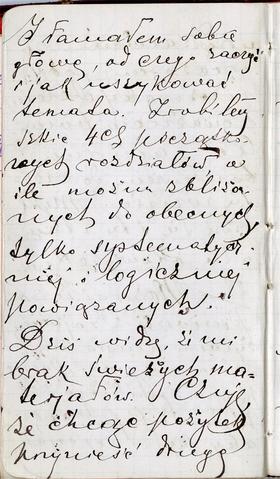 I łamałem sobie
głowę, od czego zacząć
i jak uszykować
temata. Zrobiłem
szkic 4ch początko-
wych rozdziałów, o
ile można zbliżo-
nych do obecnych
tylko systematycz-
niej i logiczniej
powiązanych.
Dziś widzę, że mi
brak świeżych ma-
terjałów. Czuję,
że chcąc pożytek
przynieść drugą